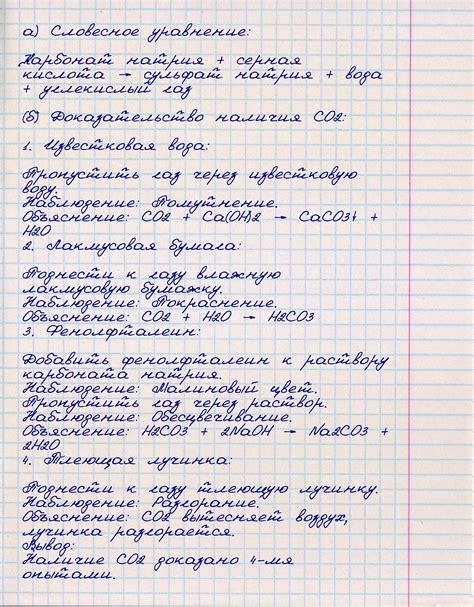 а) Словесное уравнение:
Карбонат натрия + серная
кислота → сульфат натрия + вода
+ углекислый газ
(б) Доказательство наличия CO2:
1. Известковая вода:
Пропустить газ через известковую
воду.
Наблюдение: Помутнение.
Объяснение: CO2 + Ca(OH)2 → CaCO3↓ +
H2O
2. Лакмусовая бумага:
Поднести к газу влажную
лакмусовую бумажку.
Наблюдение: Покраснение.
Объяснение: CO2 + H2O → H2CO3
3. Фенолфталеин:
Добавить фенолфталеин к раствору
карбоната натрия.
Наблюдение: Малиновый цвет.
Пропустить газ через раствор.
Наблюдение: Обесцвечивание.
Объяснение: H2CO3 + 2NaOH → Na2CO3 +
2H2O
4. Тлеющая лучинка:
Поднести к газу тлеющую лучинку.
Наблюдение: Разгорание.
Объяснение: CO2 вытесняет воздух,
лучинка разгорается.
Вывод:
Наличие CO2 доказано 4-мя
опытами.